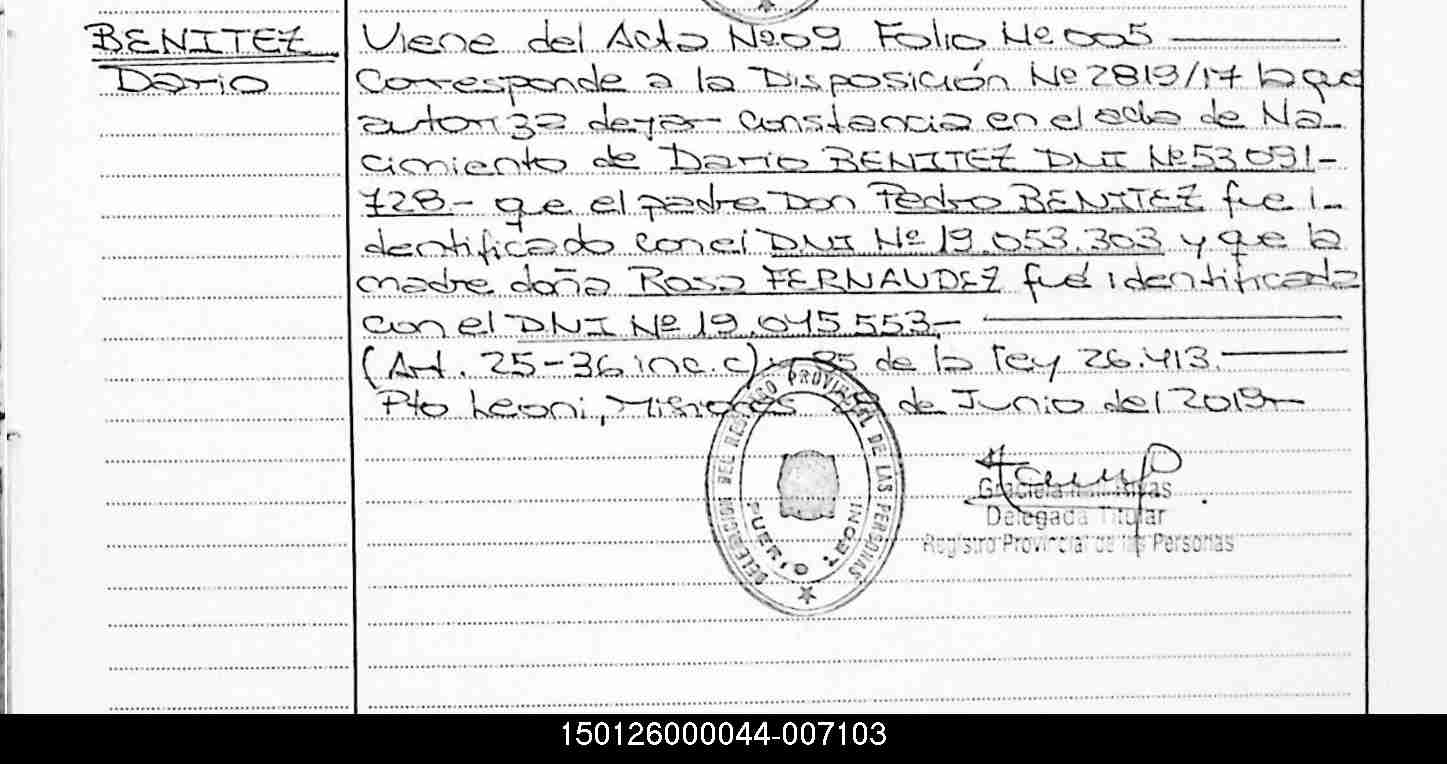 BENITEZ Viene del Acta Nº 09 Folio Nº 005
Dario Corresponde a la Disposición Nº 2819/17 la que
autoriza dejar constancia en el acta de Na-
cimiento de Dario BENITEZ DNI Nº 53.091-
728- que el padre Don Pedro BENITEZ fue i-
dentificado con el DNI Nº 19.053.303 y que la
madre doña Rosa FERNANDEZ fué identificada
con el DNI Nº 19.045.553.-
(Art. 25-36 inc. c) y 85 de la ley 26.413.
Pto Leoni, Misiones de Junio del 2019-
DELEGACION DEL REGISTRO PROVINCIAL DE LAS PERSONAS
PUERTO LEONI
Graciela Rivas
Delegada Titular
Registro Provincial de las Personas
150126000044-007103